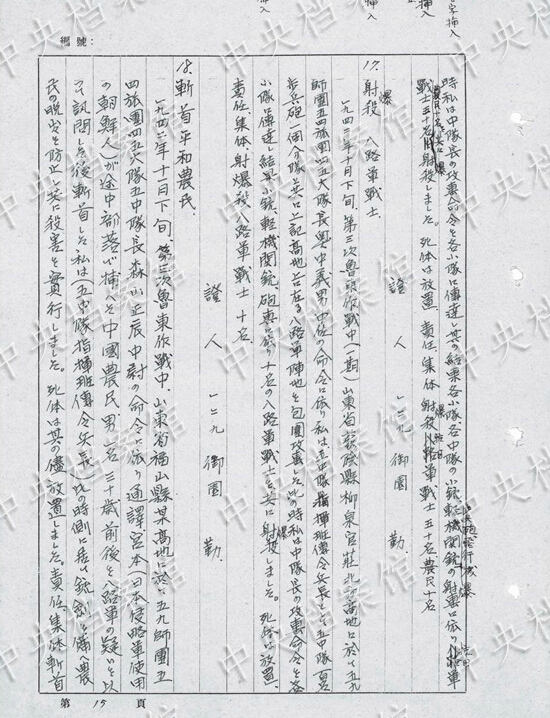 時私は中隊長の攻撃命令を各小隊に傳達し其の結果各小隊各中隊の小銃軽機関銃の射撃に依り八路軍
戦士五十名射殺しました。死体は放置、責任、集体射殺八路軍戦士五十名、農民十名
證 人 一二九 御園 勤.
17. 射殺 八路軍戦士.
一九四二年十月下旬、第三次魯東作戦中(一期)山東省 縣柳泉宮荘北方高地に於て五九
師團五四旅團四五大隊長奥中義男中佐の命令に依り私は五中隊長指揮班傳令兵長として五中隊員
歩兵砲一個分隊と共に上記高地上に在る八路軍陣地を包圍攻撃した此の時私は中隊長の攻撃命令を各
小隊に傳達し結果小銃、軽機関銃、砲撃に依り十名の八路軍戦士を共に射殺しました。死体は放置、
責任、集体射爆殺、八路軍戦士 十名
證 人 一二九 御園 勤.
18. 斬首平和農民.
一九四二年十月下旬、第三次魯東作戦中、山東省福山縣某高地に於て五九師團五
四旅團四五大隊五中隊長森小正辰中尉の命令に依り通譯宮本(日本侵略軍使用
の朝鮮人)が途中部落で捕へた中國農民、男一名三十歳前後を八路軍の疑いを以
って訊問した後斬首した私は五中隊指揮班傳令兵長、此の時側に居て銃剣を備へ農
民の脱出を防止し共に殺害を實行しました。死体は其の儘放置しました。責任集体斬首
編號：
第 15 頁
中央档案馆